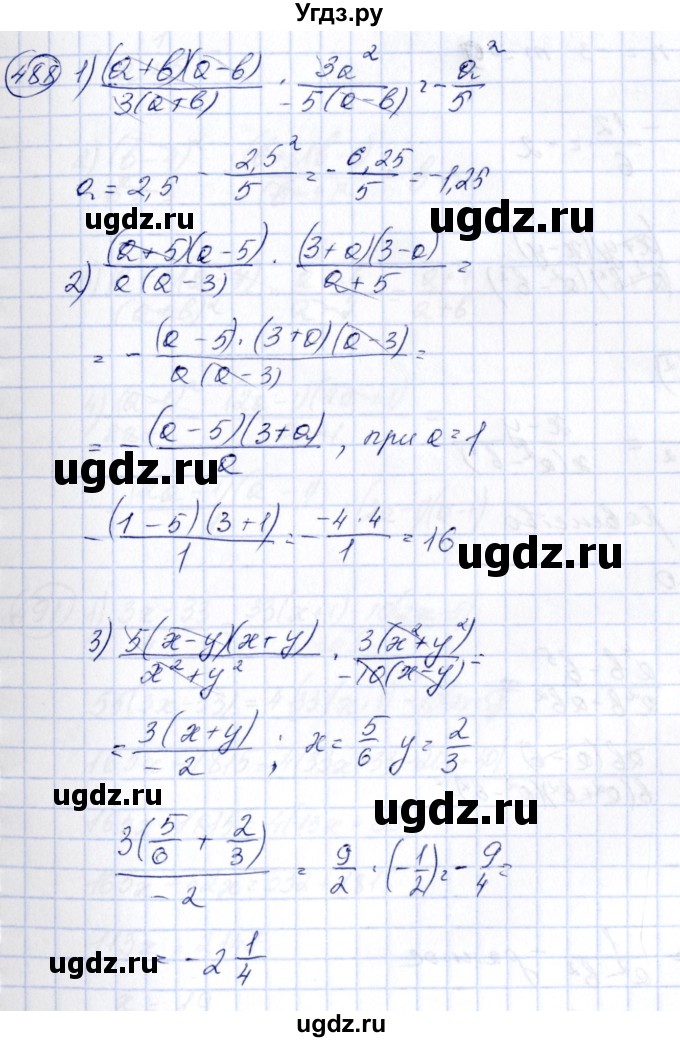 Угдз.ру
488 1) (a+b)(a-b)/3(a+b) · 3a²/-5(a-b) = -a²/5
a = 2,5 -2,5²/5 = -6,25/5 = -1,25
ugdz.ru ugdz.ru
2) (a+5)(a-5)/a(a-3) · (3+a)(3-a)/a+5 =
= -(a-5)·(3+a)(a-3)/a(a-3) =
= -(a-5)(3+a)/a, при a=1
ugdz.ru
-(1-5)(3+1)/1 = -(-4·4)/1 = 16
ugdz.ru
3) 5(x-y)(x+y)/x²+y² · 3(x²+y²)/-10(x-y) =
= 3(x+y)/-2; x = 5/6 y = 2/3
ugdz.ru ugdz.ru
3(5/6 + 2/3)/-2 = 9/2 · (-1/2) = -9/4 =
= -2 1/4
ugdz.ru ugdz.ru
ugdz.ru